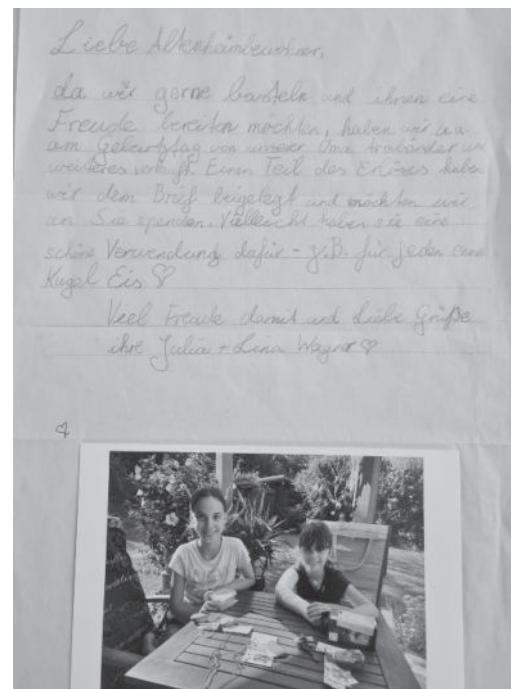 Liebe Altenheimbewohner,
da wir gerne basteln und ihnen eine
Freude bereiten möchten, haben wir u.a.
am Geburtstag von unserer Oma Armbänder und
weiteres verkauft. Einen Teil des Erlöses haben
wir dem Brief beigelegt und möchten wir
an Sie spenden. Vielleicht haben sie eine
schöne Verwendung dafür - z.B. für jeden eine
Kugel Eis ♡
Viel Freude damit und Liebe Grüße
ihre Julia + Lina Wagner ♡